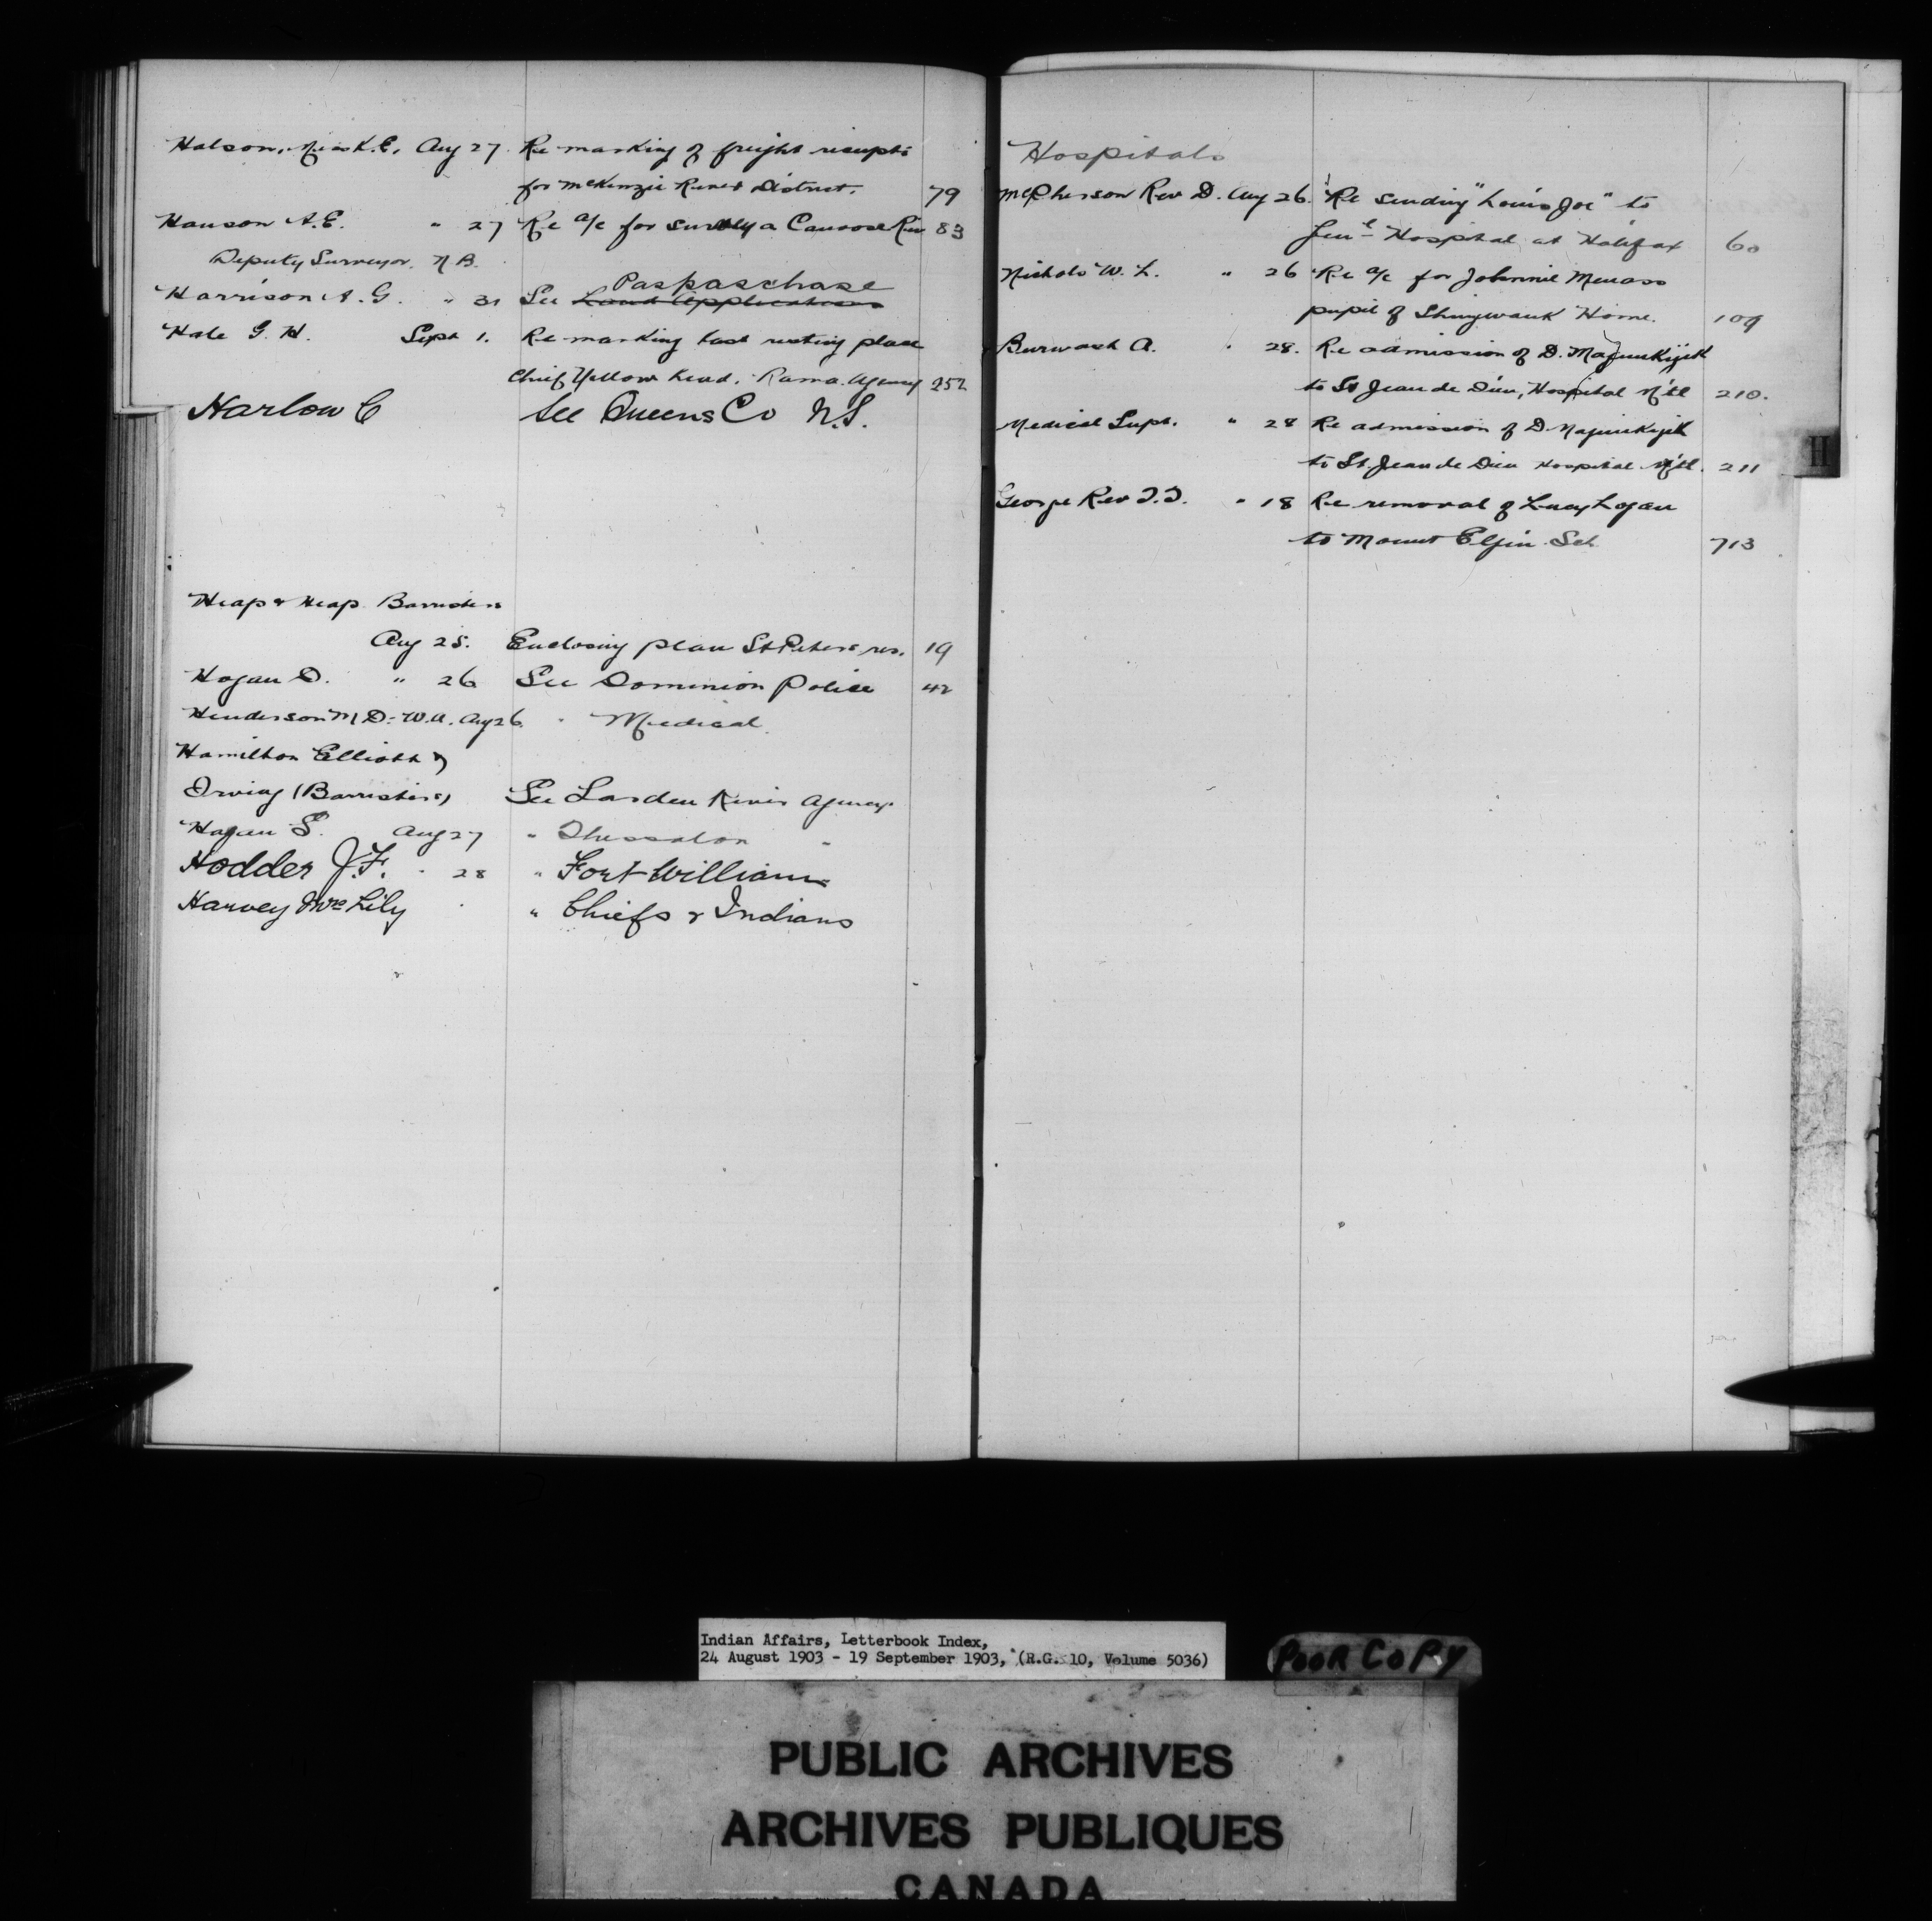 Halson, Miss K.E. Aug 27 Re marking of freight receipts
for McKenzie River District. 79
Hanson A.E. " 27 Re a/c for survey a Canoose Riv 83
Deputy Surveyor. N B.
Paspaschase
Harrison A. G. " 31 See Land Applications
Hale G. H. Sept 1. Re marking last resting place
Chief Yellow head. Rama Agency 252
Harlow C See Queens Co N.S.
Heap & Heap Barristers
Aug 25. Enclosing plan St Peters res. 19
Hogan D. " 26 See Dominion Police 42
Henderson M D. W.A. Aug 26. " Medical.
Hamilton Elliott &
Irving (Barristers) See Garden River Agency.
Hagan S. Aug 27 " Thessalon "
Hodder J.F. " 28 " Fort William
Harvey Mrs Lily " Chiefs & Indians
Hospitals
McPherson Rev D. Aug 26. Re sending "Louis Joe" to
Gen'l Hospital at Halifax 60
Nichols W. L. " 26 Re a/c for Johnnie Menass
pupil of Shingwauk Home. 109
Burwash A. " 28. Re admission of D. Maginkijik
to St Jean de Dieu, Hospital M'tl 210.
Medical Supt. " 28 Re admission of D
to St. Jean de Dieu Hospital M'tl. 211
George Rev T.T. " 18 Re removal of Lucy Logan
to Mount Elgin Sch. 713
H
Indian Affairs, Letterbook Index,
24 August 1903 - 19 September 1903, (R.G. 10, Volume 5036)
POOR COPY
PUBLIC ARCHIVES
ARCHIVES PUBLIQUES
CANADA